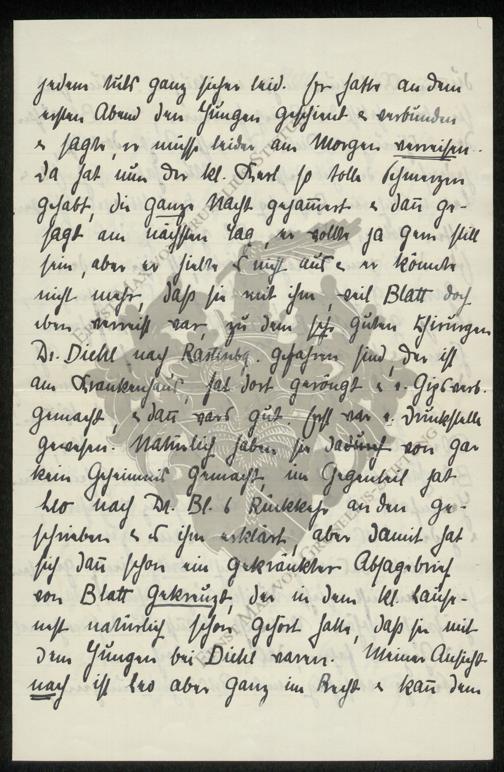 jedem tuts ganz sicher leid. Er hatte an dem
ersten Abend den Jungen geschient & verbunden
& sagte, er müsse leider am Morgen verreisen.
Da hat nun der kl. Kerl so tolle Schmerzen
gehabt, die ganze Nacht gejam̄ert & dan̄ ge-
sagt am nächsten Tag, er wollte ja gern still
sein, aber er hielte es nicht aus & er könnte
nicht mehr, daß sie mit ihm, weil Blatt doch
eben verreist war, zu dem sehr guten Chirurgen
Dr. Diehl nach Rastenbg. gefahren sind, der ist
am Krankenhaus, hat dort geröngt & e. Gipsverb.
gemacht, & dan̄ wars gut. Erst war e. Druckstelle
gewesen. Natürlich haben sie dadurch von gar
kein Geheimnis gemacht, im Gegenteil hat
Leo nach Dr. Bl. s Rückkehr an den ge-
schrieben & es ihm erklärt, aber damit hat
sich dan̄ schon ein gekränkter Absagebrief
von Blatt gekreuzt, der in dem kl. Lause-
nest natürlich schon gehört hatte, daß sie mit
dem Jungen bei Diehl waren. Meiner Ansicht
nach ist Leo aber ganz im Recht & kan̄ dem
Ernst Max von Grunelius-Stiftung
Ernst Max von Grunelius-Stiftung